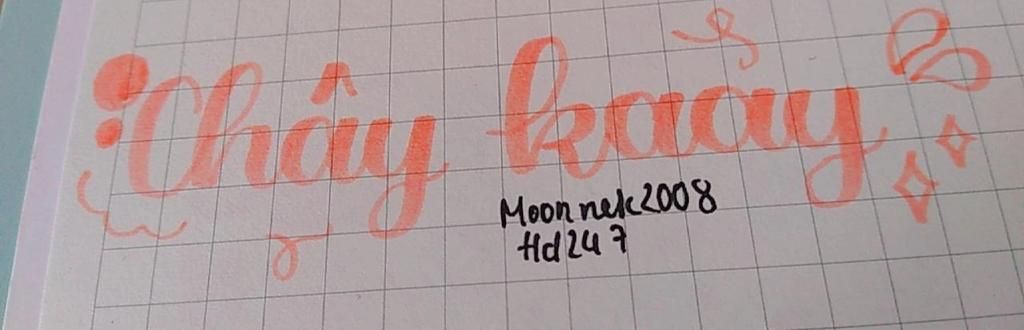 Chậy kaảy
Moonnek2008
Hd247